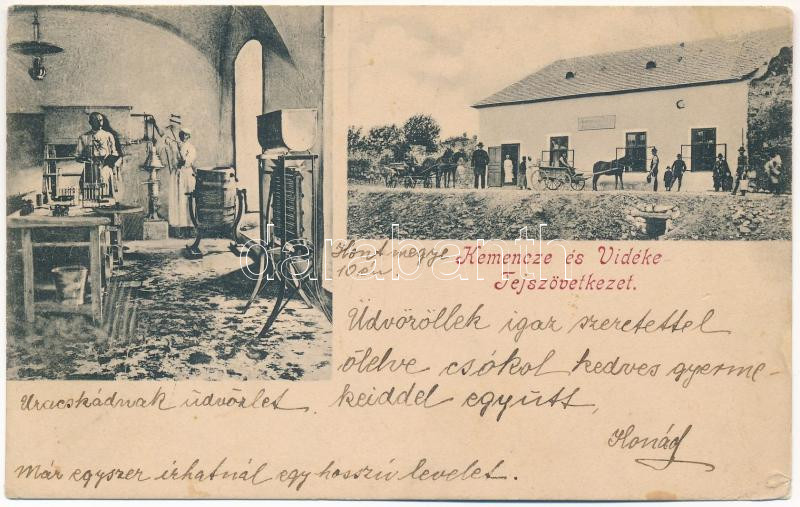 Hont megye
10 én
Kemencze és Vidéke
Tejszövetkezet.
Üdvöröllek igaz szeretettel
ölelve csókol kedves gyerme-
keiddel együtt,
Uracskádnak üdvözlet.
Már egyszer írhatnál egy hosszú levelet.
darabanth